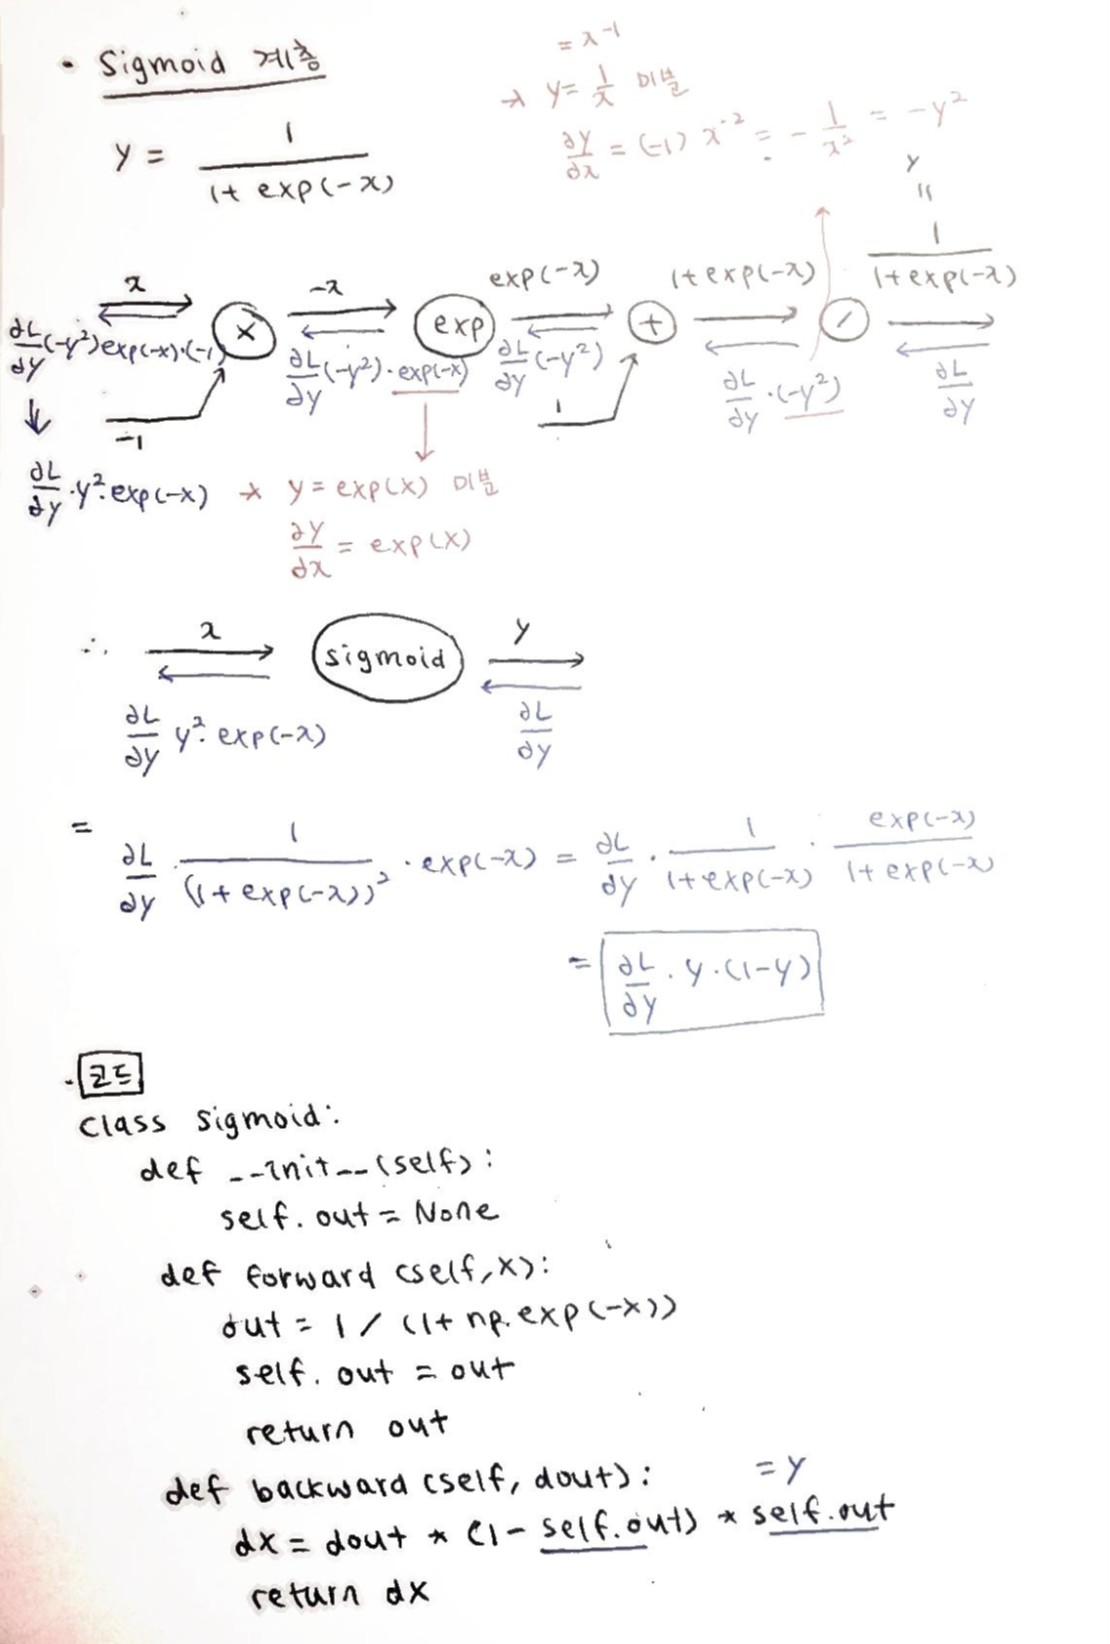 • Sigmoid 계층
y = 1 / (1 + exp(-x))
= x⁻¹
→ y = 1/x 미분
∂y/∂x = (-1) x⁻² = - 1/x² = -y²
y
=
x -x exp(-x) 1+exp(-x) 1/(1+exp(-x))
× exp + /
∂L/∂y (-y²) exp(-x)·(-1) ∂L/∂y (-y²)·exp(-x) ∂L/∂y (-y²) ∂L/∂y·(-y²) ∂L/∂y
-1 1
∂L/∂y · y² · exp(-x) → y = exp(x) 미분
∂y/∂x = exp(x)
∴ x sigmoid y
∂L/∂y y² · exp(-x) ∂L/∂y
= ∂L/∂y · 1/(1+exp(-x))² · exp(-x) = ∂L/∂y · 1/(1+exp(-x)) · exp(-x)/(1+exp(-x))
= ∂L/∂y · y · (1-y)
· 코드
class sigmoid:
def __init__(self):
self.out = None
def forward (self, x):
out = 1 / (1 + np.exp(-x))
self.out = out
return out
def backward (self, dout): = y
dx = dout * (1 - self.out) * self.out
return dx